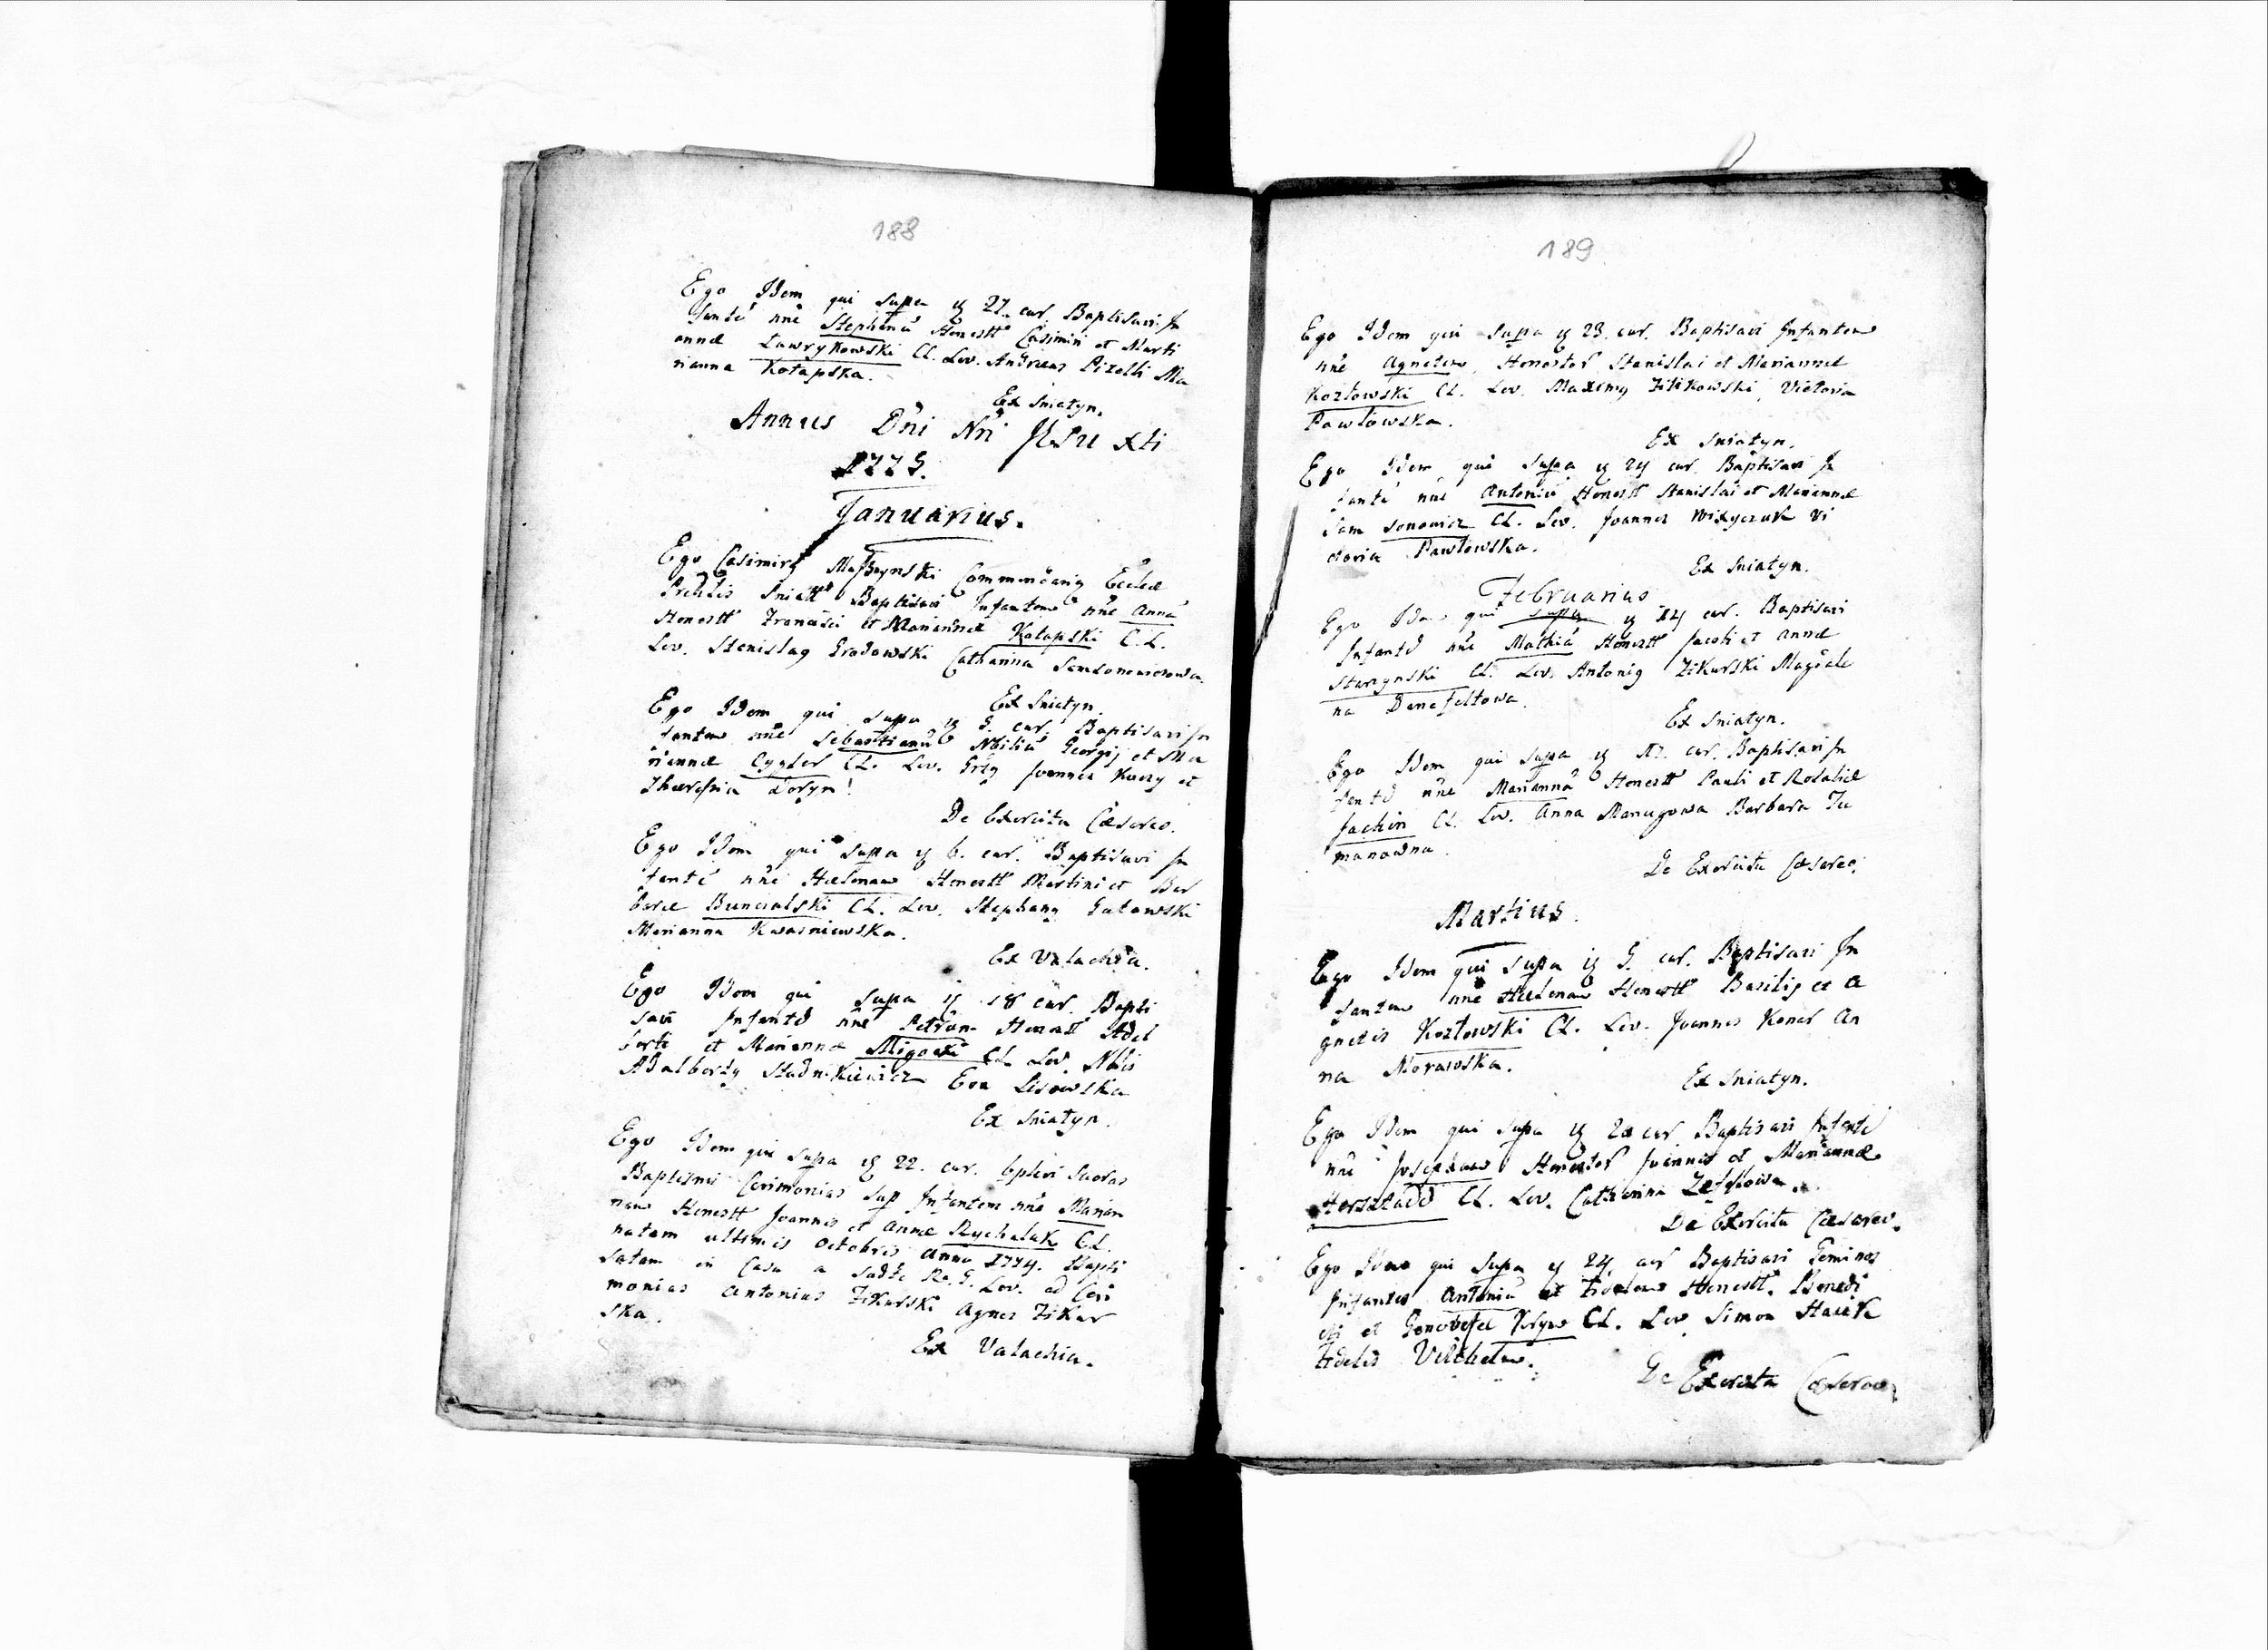 188
Ego Idem qui supa 27. cur. Baptisavi In
fantē nnē Stephanū Honestt Casimiri et Mari
annæ Ławrykowski CL. Lev. Andreas Pizelli Ma
rianna Kotapska.
Ex Sniatyn.
Annus Dni Nri Jesu Xti
1775.
Januarius.
Ego Casimirg Commendarig Eccleæ
Baptisavi Infantem nne Annā
Honestt Francisci et Mariannæ Kotapski C. L.
Lev. Stanislag Grodowski Catharina
Ex Sniatyn
Ego Idem qui supa 5. cur. Baptisavi In
fantem nnē Sebastianū Nbiliū Georgij et Ma
riannæ Cygler CL. Lev. Joannes et
De Exercitu Cæsareo.
Ego Idem qui supa 6. cur. Baptisavi In
fantē nnē Helenam Honestt Martini et Bar
baræ CL. Lev. Stephang Gutowski
Marianna Kwasniewska.
Ex Valachia.
Ego Idem qui supa 18 cur. Bapti
savi Infantē nnē Petrum Honestt Adal
berti et Mariannæ Migocki CL Lev. Nbis
Adalbertg Stadnikiewicz Eva Lisowska
Ex Sniatyn.
Ego Idem qui supa 22. cur. Sacras
Baptismi Cerimonias sup Infantem nnē Marian
nam Honestt Joannis et Annæ Rychalak CL.
natam ultimis Octobris Anno 1774. Bapti
satam in Casa a Lev. ad Ceri
monias Antonius Zikurski Agnes Zikur
ska.
Ex Valachia.
189
Ego Idem qui supa 23. cur. Baptisavi Infantem
nnē Agnetem, Honestor Stanislai et Mariannæ
Kozłowski CL. Lev. Maximg Victoria
Pawłowska.
Ex Sniatyn.
Ego Idem qui supa 24 cur. Baptisavi In
fantē nnē Antoniū Honestt Stanislai et Mariannæ
Sam sonowicz CL. Lev. Joannes Vi
ctoria Pawłowska.
Ex Sniatyn.
Februarius
Ego Idem qui supa 14 cur. Baptisavi
Infantē nnē Mathiā Honestt Jacobi et Annæ
Starzynski CL. Lev. Antonig Zikurski Magdale
na
Ex Sniatyn.
Ego Idem qui supa cur. Baptisavi In
fantē nnē Mariannā Honestt Pauli et Rosaliæ
Jachin CL. Lev. Anna Manugowa Barbara Tu
manowna.
De Exercitu Cæsareo.
Martius.
Ego Idem qui supa 5. cur. Baptisavi In
fantem nnē Helenam Honestt Basilij et A
gnetis Kozłowski CL. Lev. Joannes An
na Morawska.
Ex Sniatyn.
Ego Idem qui supa cur. Baptisavi Infantē
nnē Josephum Honestor Joannis et Mariannæ
CL. Lev. Catharina
De Exercitu Cæsareo.
Ego Idem qui supa 24. cur Baptisavi Geminos
Infantes Antoniū et Fidelem Honestt. Benedi
cti et CL. Lev Simon
Fidelis
De Exercitu Cæsareo.